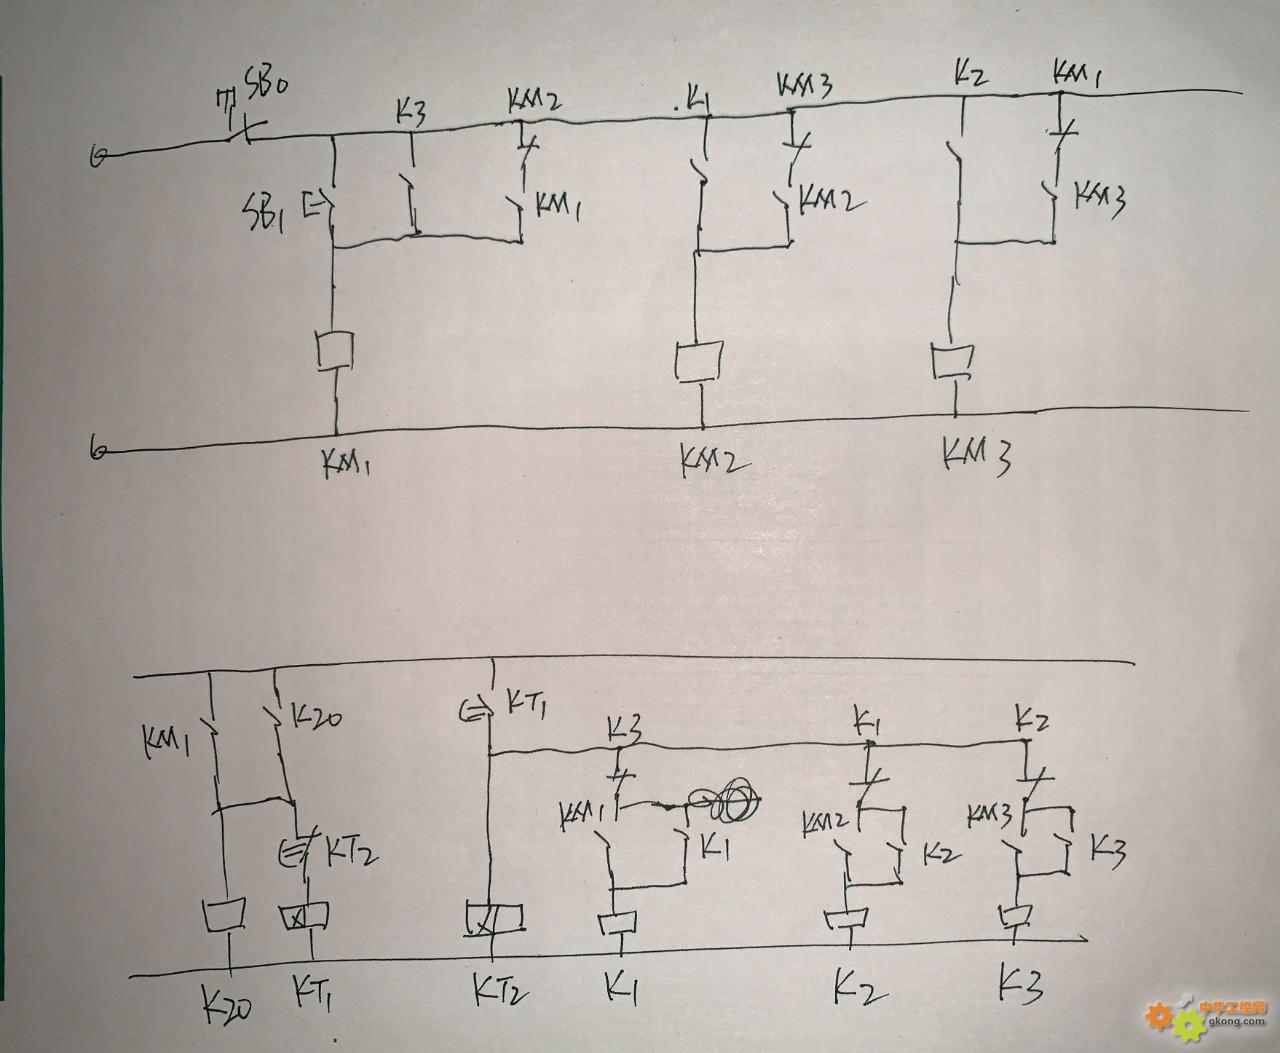 SB0
K3
KM2
K1
KM3
K2
KM1
SB1
KM1
KM2
KM3
KM1
KM2
KM3
KM1
K20
KT1
K3
K1
K2
KT2
KM1
K1
KM2
K2
KM3
K3
K20
KT1
KT2
K1
K2
K3
中华工控网
gkong.com